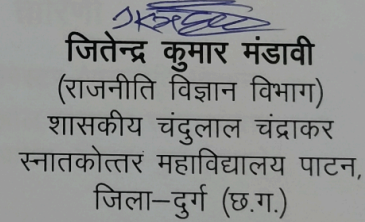 जितेन्द्र कुमार मंडावी
(राजनीति विज्ञान विभाग)
शासकीय चंदुलाल चंद्राकर
स्नातकोत्तर महाविद्यालय पाटन,
जिला-दुर्ग (छ.ग.)